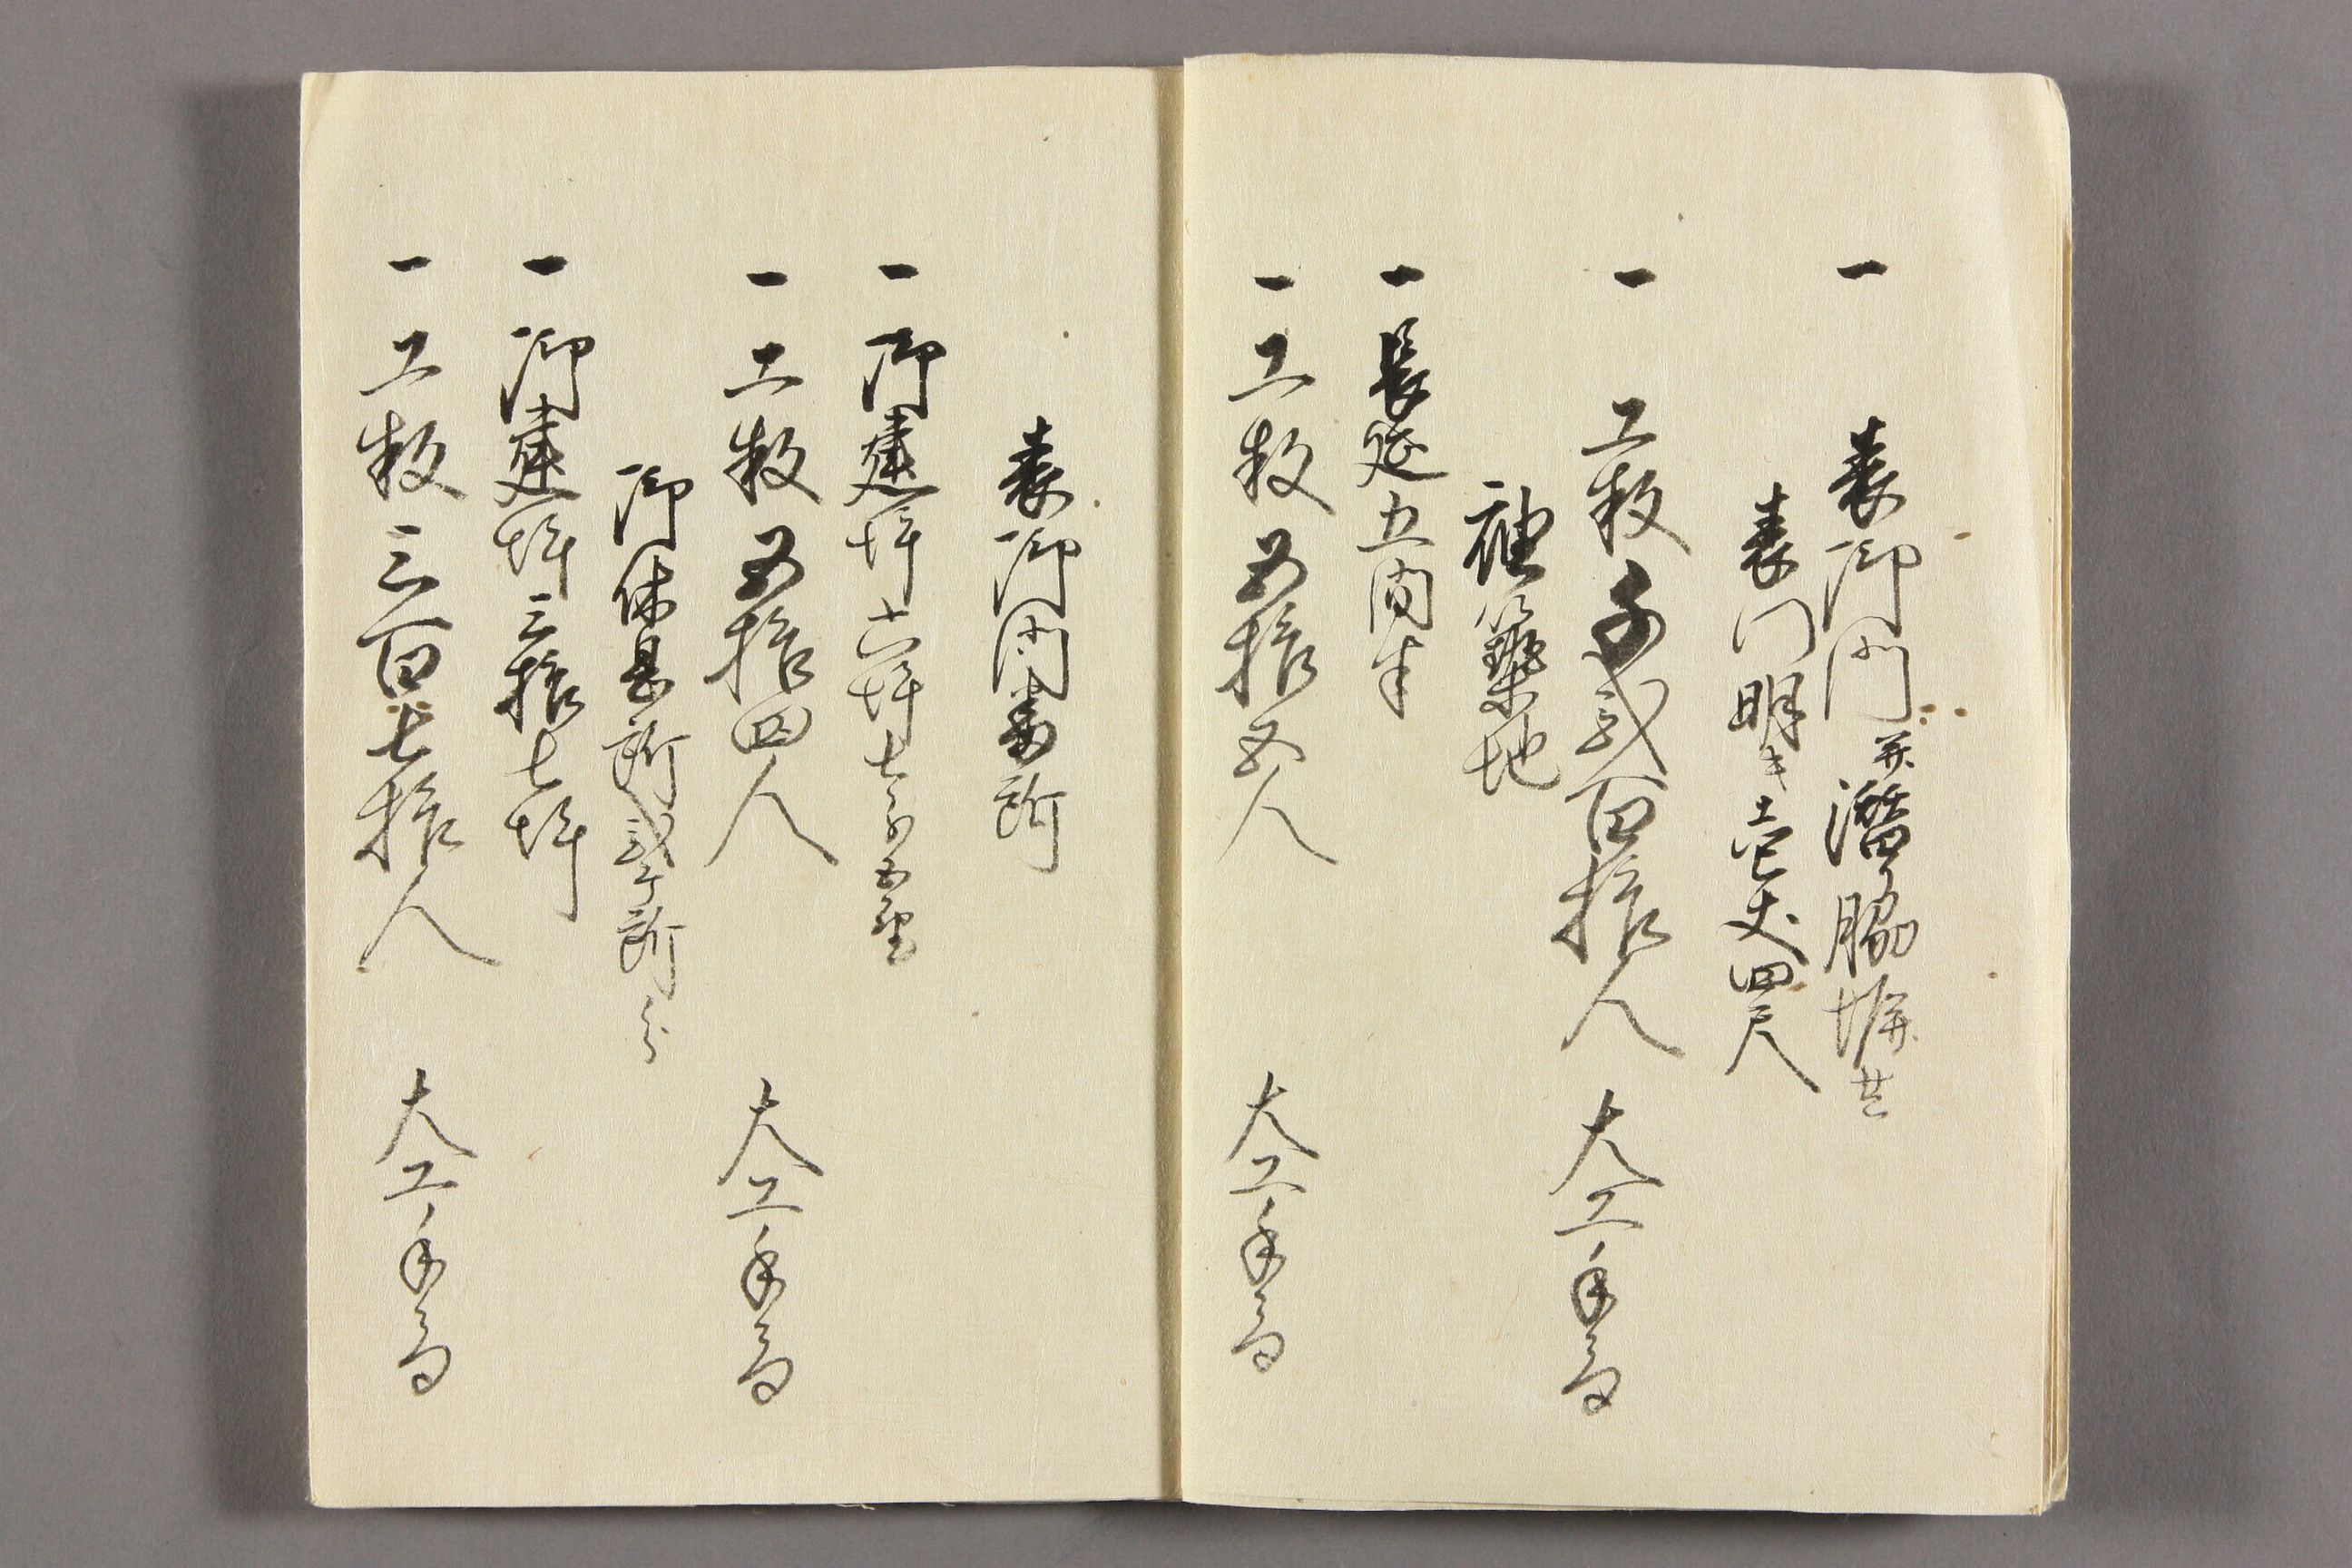 一 表御門并潜り脇塀共
表門明キ壱丈四尺
一 工数千弐百拾人 大工手間
袖築地
一 長延五間半
一 工数五拾五人 大工手間
表御門番所
一 御建坪六坪七分五厘
一 工数五拾四人 大工手間
御休息所弐ケ所
一 御建坪三拾七坪
一 工数三百七拾人 大工手間